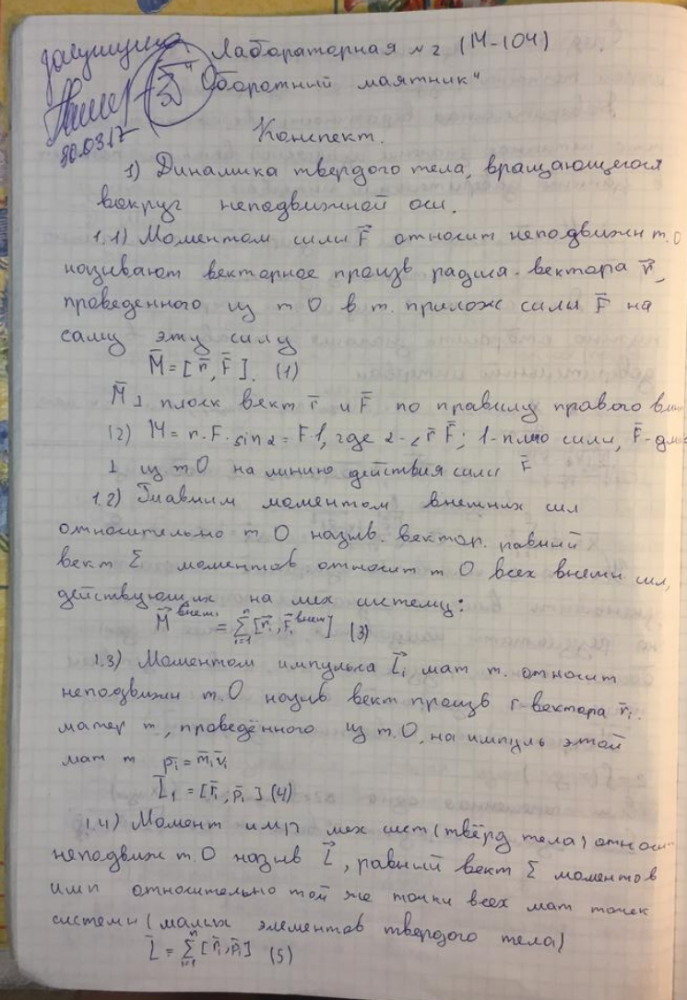 защищена
30.03.17
Лабораторная №2 (М-104)
"Оборотный маятник"
Конспект.
1) Динамика твердого тела, вращающегося
вокруг неподвижной оси.
1.1) Моментом силы F⃗ относит неподвижн т.О
называют векторное произв радиа-вектора r⃗,
проведенного из т О в т. приложс силы F⃗ на
саму эту силу
M̄ = [r̄, F̄]. (1)
M̄ ⊥ плоск вект r̄ и F̄ по правилу правого
(2) M = r·F·sin α = F·l, где α - ∠ r̄ F̄; l - плечо силы, F̄ -
⊥ из т.О на линию действия силы F̄
1.2) Главным моментом внешних сил
относительно т О назыв. вектор. равный
вект Σ моментов относит т О всех внешн сил,
действующих на мех систему:
M⃗ внеш = Σ [r̄i, F̄i внеш] (3)
1.3) Моментом импульса L⃗i мат т. относит
неподвижн т.О назыв вект произв r-вектора r̄i.
матер т, проведённого из т.О, на импуль этой
мат т p̄i = m̄i v̄i
L̄1 = [r̄i, p̄i] (4)
1.4) Момент имп мех сист (твёрд тела) относи
неподвиж т.О назыв L⃗, равный вект Σ моментов
имп относительно той же точки всех мат точек
системы (малых элементов твердого тела)
L̄ = Σ [r̄i, p̄i] (5)